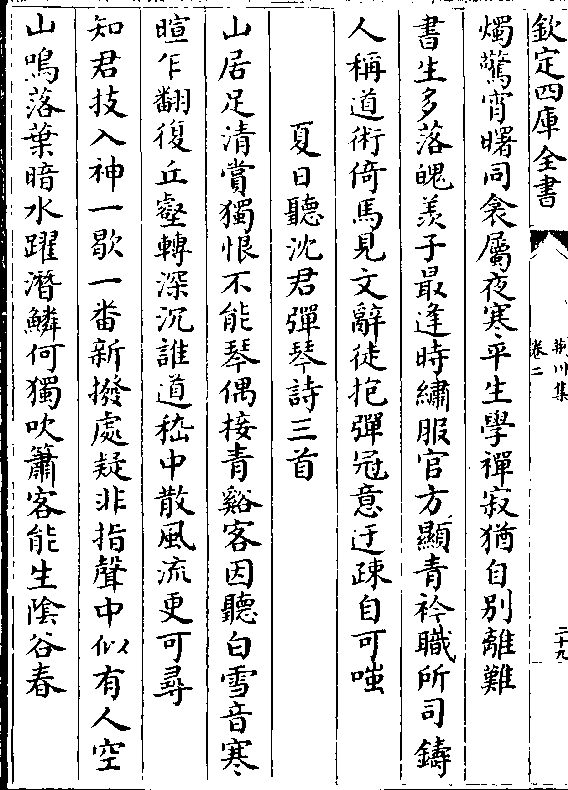 欽定四庫全書
荆川集
卷二
二十九
燭驚宵曙同衾屬夜寒平生學禪寂猶自別離難
書生多落魄羨子最逢時繡服官方顯青衿職所司鑄
人稱道術倚馬見文辭徒抱彈冠意迂疎自可嗤
夏日聽沈君彈琴詩三首
山居足清賞獨恨不能琴偶接青谿客因聽白雪音寒
暄乍翻復丘壑轉深沉誰道嵇中散風流更可尋
知君技入神一歇一番新撥處疑非指聲中似有人空
山鳴落葉暗水躍潛鱗何獨吹簫客能生陰谷春